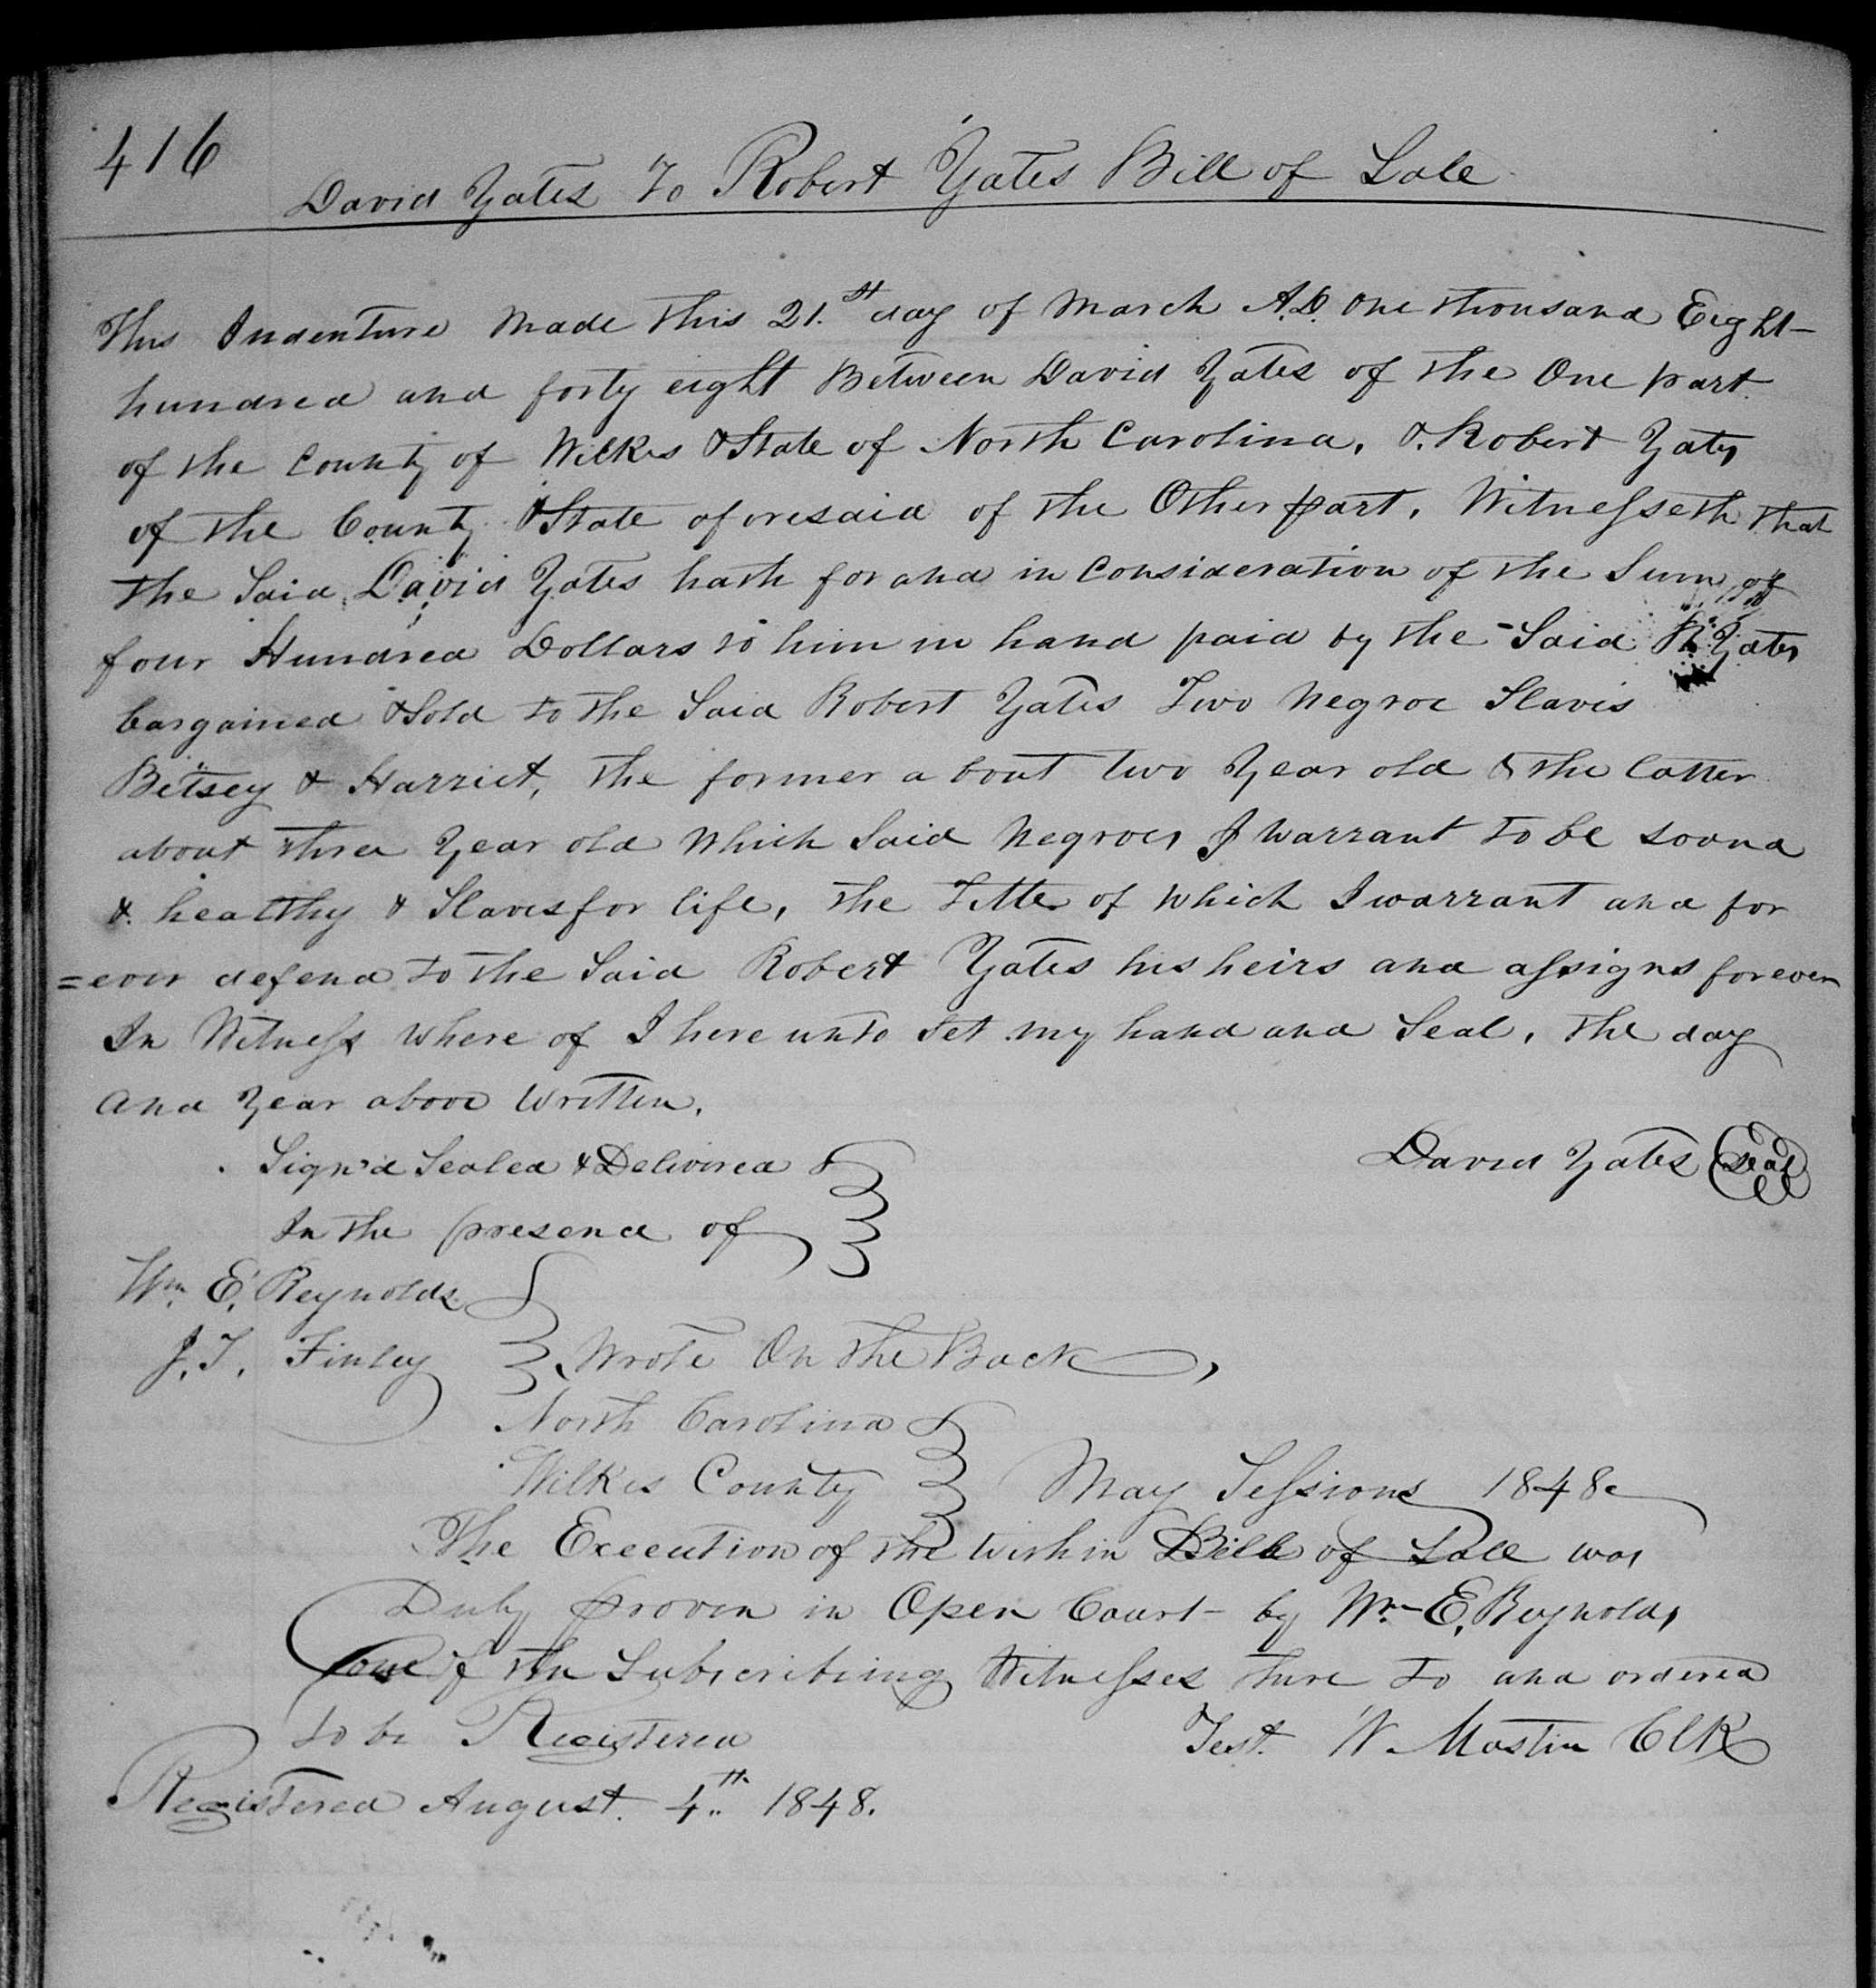 416
David Yates To Robert Yates Bill of Sale
This Indenture Made this 21.st day of March A.D. One thousand Eight-
hundred and forty eight Between David Yates of the One part
of the County of Wilkes & State of North Carolina, & Robert Yates
of the County & State aforesaid of the Other part, Witnesseth that
the Said David Yates hath for and in Consideration of the Sum of
four Hundred Dollars to him in hand paid by the Said R. Yates
bargained & Sold to the Said Robert Yates Two Negroe Slaves
Betsey & Harriet, the former about two Year old & the latter
about three Year old Which Said Negroes I warrant to be sound
& healthy & Slaves for life, the Title of Which I warrant and for
=ever defend to the Said Robert Yates his heirs and assigns forever
In Witness where of I here unto Set my hand and Seal, the day
and Year above Written.
David Yates (Seal)
Sign'd Sealed & Delivered
In the presence of
Wm. E. Reynolds
J. T. Finley
Wrote On the Back,
North Carolina
Wilkes County May Sessions 1848
The Execution of the within Bill of Sale was
Duly proven in Open Court by Wm E. Reynolds
one of the Subscribing Witnesses there to and ordered
to be Registered Test. W. Mastin Clk
Registered August 4th 1848.